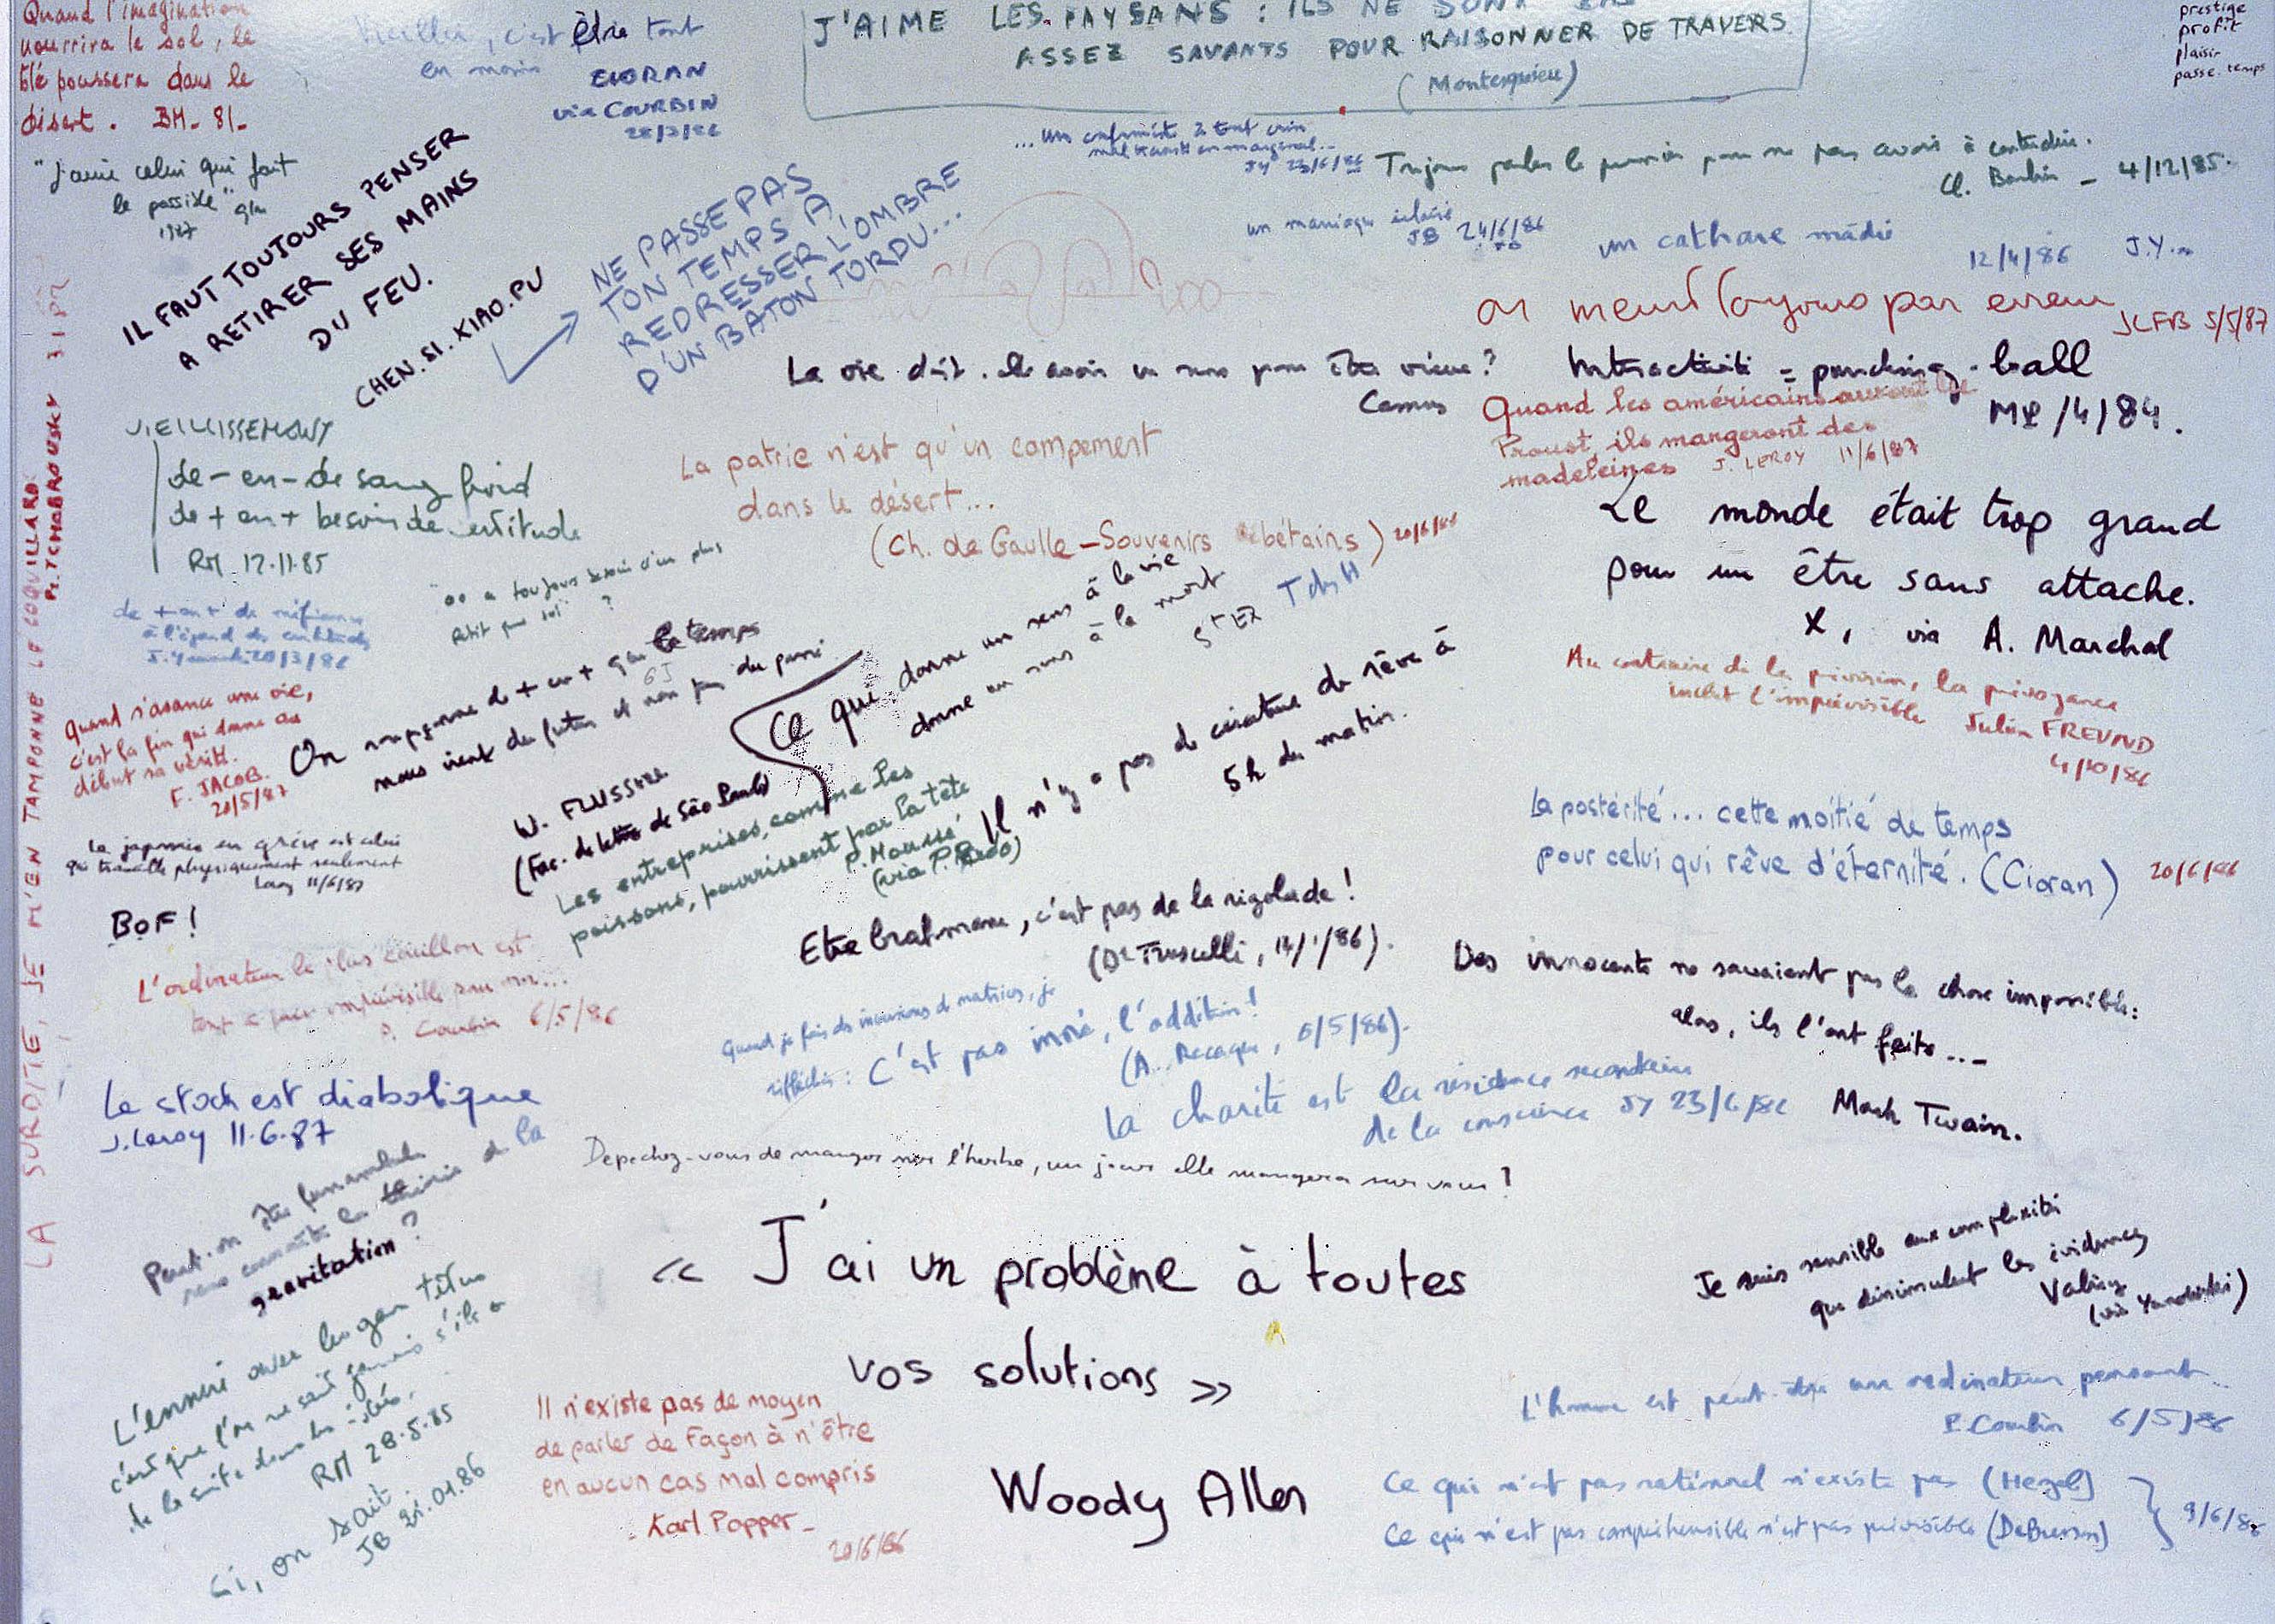 Quand l'imagination
nourrira le sol, le
blé poussera dans le
désert. BM- 81-
Vieillir, c'est être tout
en moins
CIORAN
via COURBIN
J'AIME LES PAYSANS : ILS NE SONT PAS
ASSEZ SAVANTS POUR RAISONNER DE TRAVERS.
(Montesquieu)
prestige
profit
plaisir
passe-temps
"j'aime celui qui fait
le possible"
1987
IL FAUT TOUJOURS PENSER
A RETIRER SES MAINS
DU FEU.
CHEN.SI.XIAO.PU
NE PASSE PAS
TON TEMPS A
REDRESSER L'OMBRE
D'UN BATON TORDU...
JY 23/6/86
Toujours parler le premier pour ne pas avoir à contredire.
4/12/85.
un maniaque éclairé
JB 24/6/86
un cathare mâdié
12/4/86 J.Y.
On meurt toujours par erreur
JLFB 5/5/87
La vie doit-elle avoir un sens pour être vécue ?
Camus
Interactivité = punching-ball
/4/84.
Quand les américains auront lu
Proust, ils mangeront des
madeleines J. LEROY 11/6/87
VIEILLISSEMENT
de - en - de sang froid
de + en + besoin de certitude
RM 12.11.85
de + en + de méfiance
à l'égard des certitudes
20/3/86
La patrie n'est qu'un campement
dans le désert...
(Ch. de Gaulle - Souvenirs bétains) 20/6/86
Le monde était trop grand
pour un être sans attache.
X, via A. Marchal
"on a toujours besoin d'un plus
petit que soi" ?
Au contraire de la prévision, la prévoyance
inclut l'imprévisible Julien FREUND
4/10/86
Quand s'avance une vie,
c'est la fin qui donne au
début sa vérité.
F. JACOB.
20/5/87
On soupçonne de + en + que le temps
nous vient du futur et non pas du passé.
W. FLUSSER
(Fac. de lettres de São Paulo)
Ce qui donne un sens à la vie
donne un sens à la mort
St EX T des H
Il n'y a pas de créature de rêve à
5h du matin.
Les entreprises, comme les
poissons, pourrissent par la tête
P. Moussé
La postérité... cette moitié de temps
pour celui qui rêve d'éternité. (Cioran) 20/6/86
Le japonais en grève est celui
qui travaille physiquement seulement
Leroy 11/6/87
BOF !
L'ordinateur le plus couillon est
tout à fait imprévisible pour moi...
P. Courbin 6/5/86
Etre brahmane, c'est pas de la rigolade !
(Dr Truscelli, /1/86).
Quand je fais des inversions de matrices, je
réfléchis : C'est pas inné, l'addition !
6/5/86).
Des innocents ne savaient pas la chose impossible :
alors, ils l'ont faite...
Mark Twain.
Le stock est diabolique
J. Leroy 11.6.87
La charité est la résidence secondaire
de la conscience JY 23/6/86
Dépechez-vous de manger sur l'herbe, un jour elle mangera sur vous !
Peut-on être funambule
sans connaître la théorie de la
gravitation ?
« J'ai un problème à toutes
vos solutions »
Woody Allen
Je suis sensible aux complexités
que dissimulent les évidences
Valéry
(via Yanowski)
L'ennui avec les gens têtus
c'est que l'on ne sait jamais s'ils ont
de la suite dans les idées.
RM 28.5.85
Si, on sait.
JB 21.01.86
Il n'existe pas de moyen
de parler de façon à n'être
en aucun cas mal compris
- Karl Popper -
20/6/86
L'homme est peut-être un ordinateur pensant
P. Courbin 6/5/86
Ce qui n'est pas rationnel n'existe pas (Hegel)
Ce qui n'est pas compréhensible n'est pas prévisible
9/6/86
LA SURDITE, JE M'EN TAMPONNE LE COQUILLARD
Pr. TCHABROUSKY